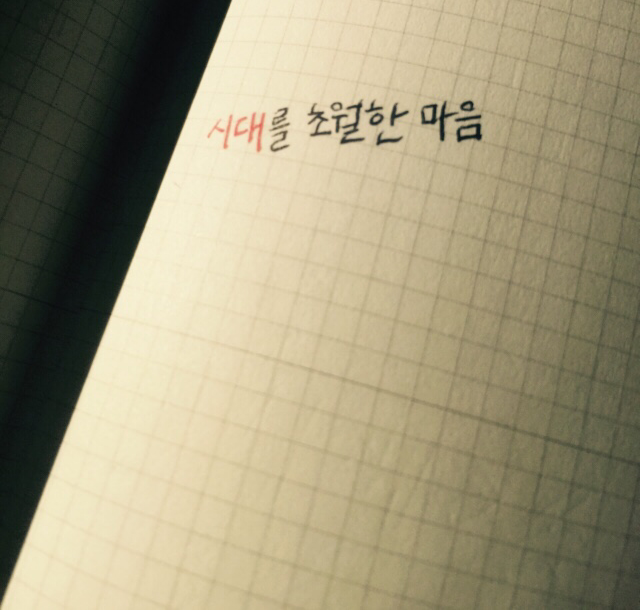 시대를 초월한 마음